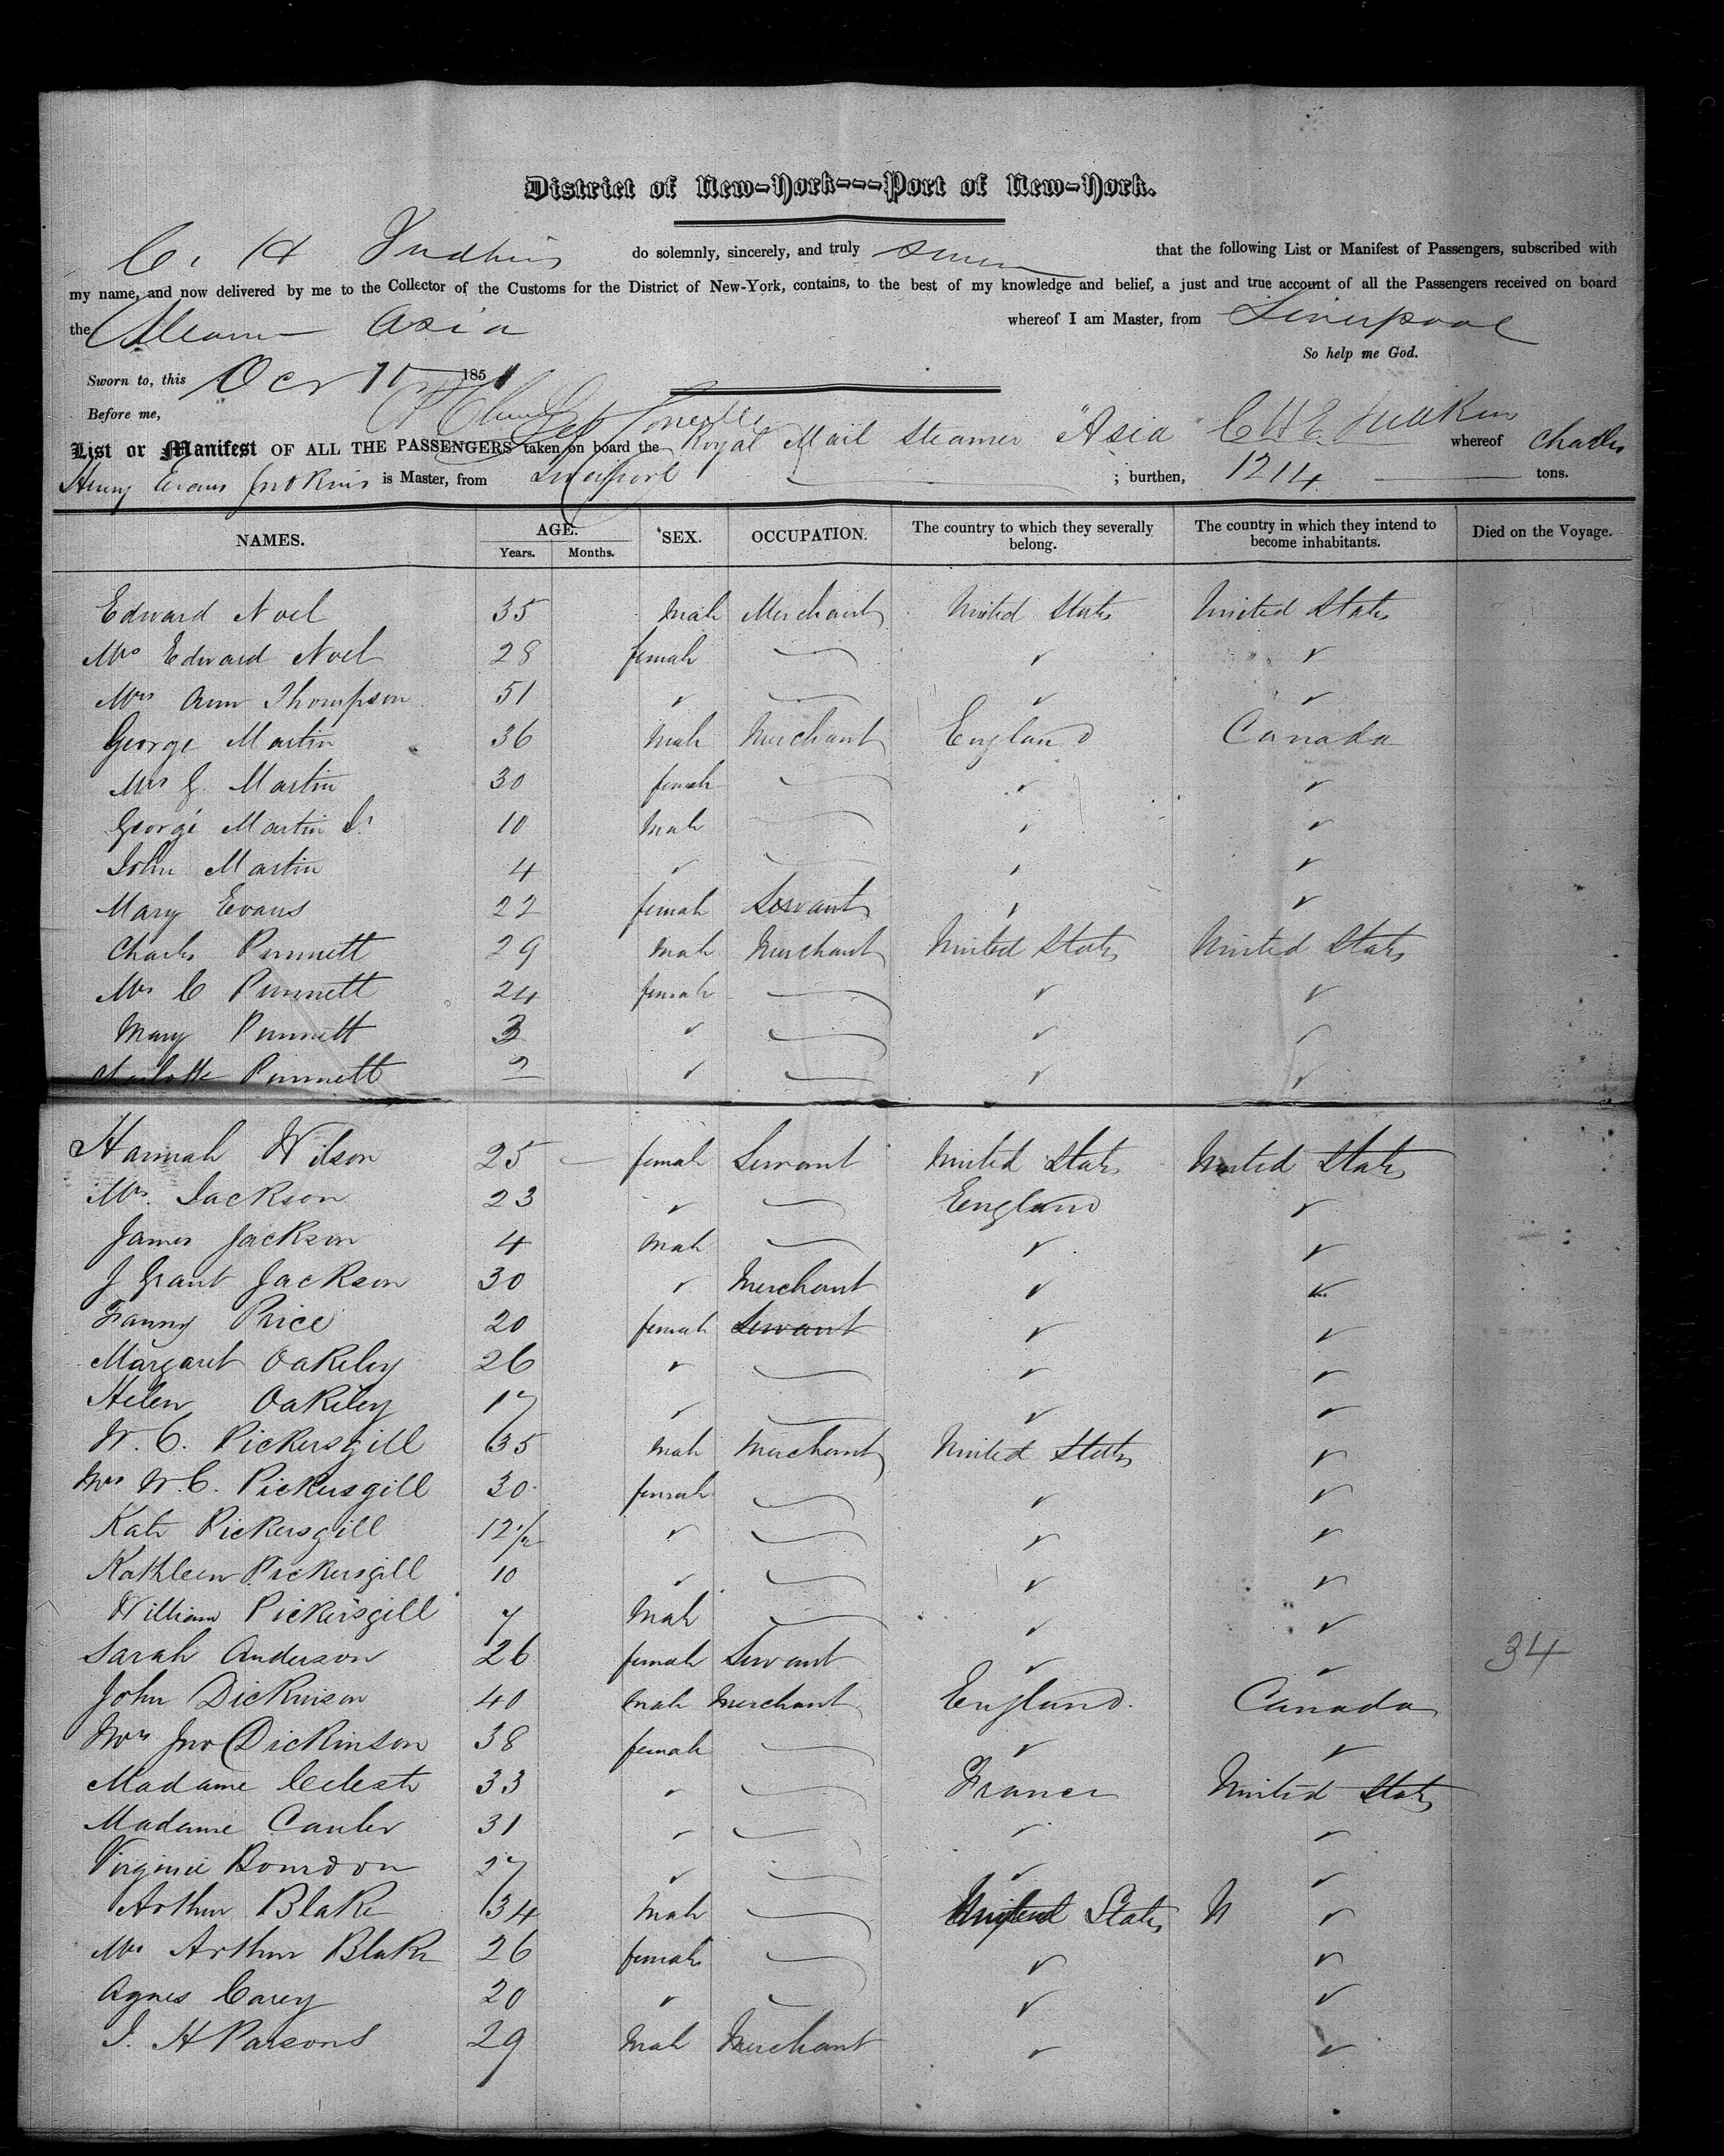 District of New-York---Port of New-York.
C. H Judkins do solemnly, sincerely, and truly swear that the following List or Manifest of Passengers, subscribed with
my name, and now delivered by me to the Collector of the Customs for the District of New-York, contains, to the best of my knowledge and belief, a just and true account of all the Passengers received on board
the Steamer Asia whereof I am Master, from Liverpool
So help me God.
Sworn to, this Oct 1851
Before me,
List or Manifest OF ALL THE PASSENGERS taken on board the Royal Mail Steamer "Asia" whereof Charles
Henry Evans Judkins is Master, from Liverpool ; burthen, 1214 tons.
NAMES. AGE. SEX. OCCUPATION. The country to which they severally belong. The country in which they intend to become inhabitants. Died on the Voyage.
Years. Months.
Edward Noel 35 Male Merchant United States United States
Mrs Edward Noel 28 female ✓ ✓
Mrs Ann Thompson 51 ✓ ✓ ✓
George Martin 36 Male Merchant England Canada
Mrs G. Martin 30 female ✓ ✓
George Martin Jr 10 Male ✓ ✓
John Martin 4 ✓ ✓ ✓
Mary Evans 22 female Servant ✓ ✓
Charles Punnett 29 Male Merchant United States United States
Mrs C Punnett 24 female ✓ ✓
Mary Punnett 3 ✓ ✓ ✓
Charlotte Punnett 2 ✓ ✓ ✓
Hannah Wilson 25 female Servant United States United States
Mrs. Jackson 23 ✓ England ✓
James Jackson 4 Male ✓ ✓
J Grant Jackson 30 ✓ Merchant ✓ ✓
Fanny Price 20 female Servant ✓ ✓
Margaret Oakeley 26 ✓ ✓ ✓
Helen Oakeley 17 ✓ ✓ ✓
W. C. Pickersgill 35 Male Merchant United States ✓
Mrs W. C. Pickersgill 30 female ✓ ✓
Kate Pickersgill 12 1/2 ✓ ✓ ✓
Kathleen Pickersgill 10 ✓ ✓ ✓
William Pickersgill 7 Male ✓ ✓
Sarah Anderson 26 female Servant ✓ ✓ 34
John Dickinson 40 Male Merchant England Canada
Mrs Jno Dickinson 38 female ✓ ✓
Madame Celeste 33 ✓ France United States
Madame 31 ✓ ✓ ✓
Virginie Bourdon 27 ✓ ✓ ✓
Arthur Blake 34 Male United States U ✓
Mrs Arthur Blake 26 female ✓ ✓
Agnes Carey 20 ✓ ✓ ✓
J. H Parsons 29 Male Merchant ✓ ✓